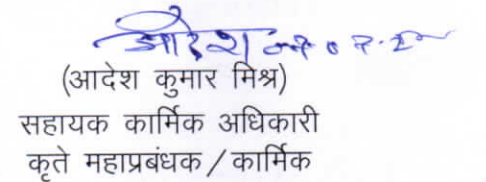 आदेश
(आदेश कुमार मिश्र)
सहायक कार्मिक अधिकारी
कृते महाप्रबंधक/कार्मिक